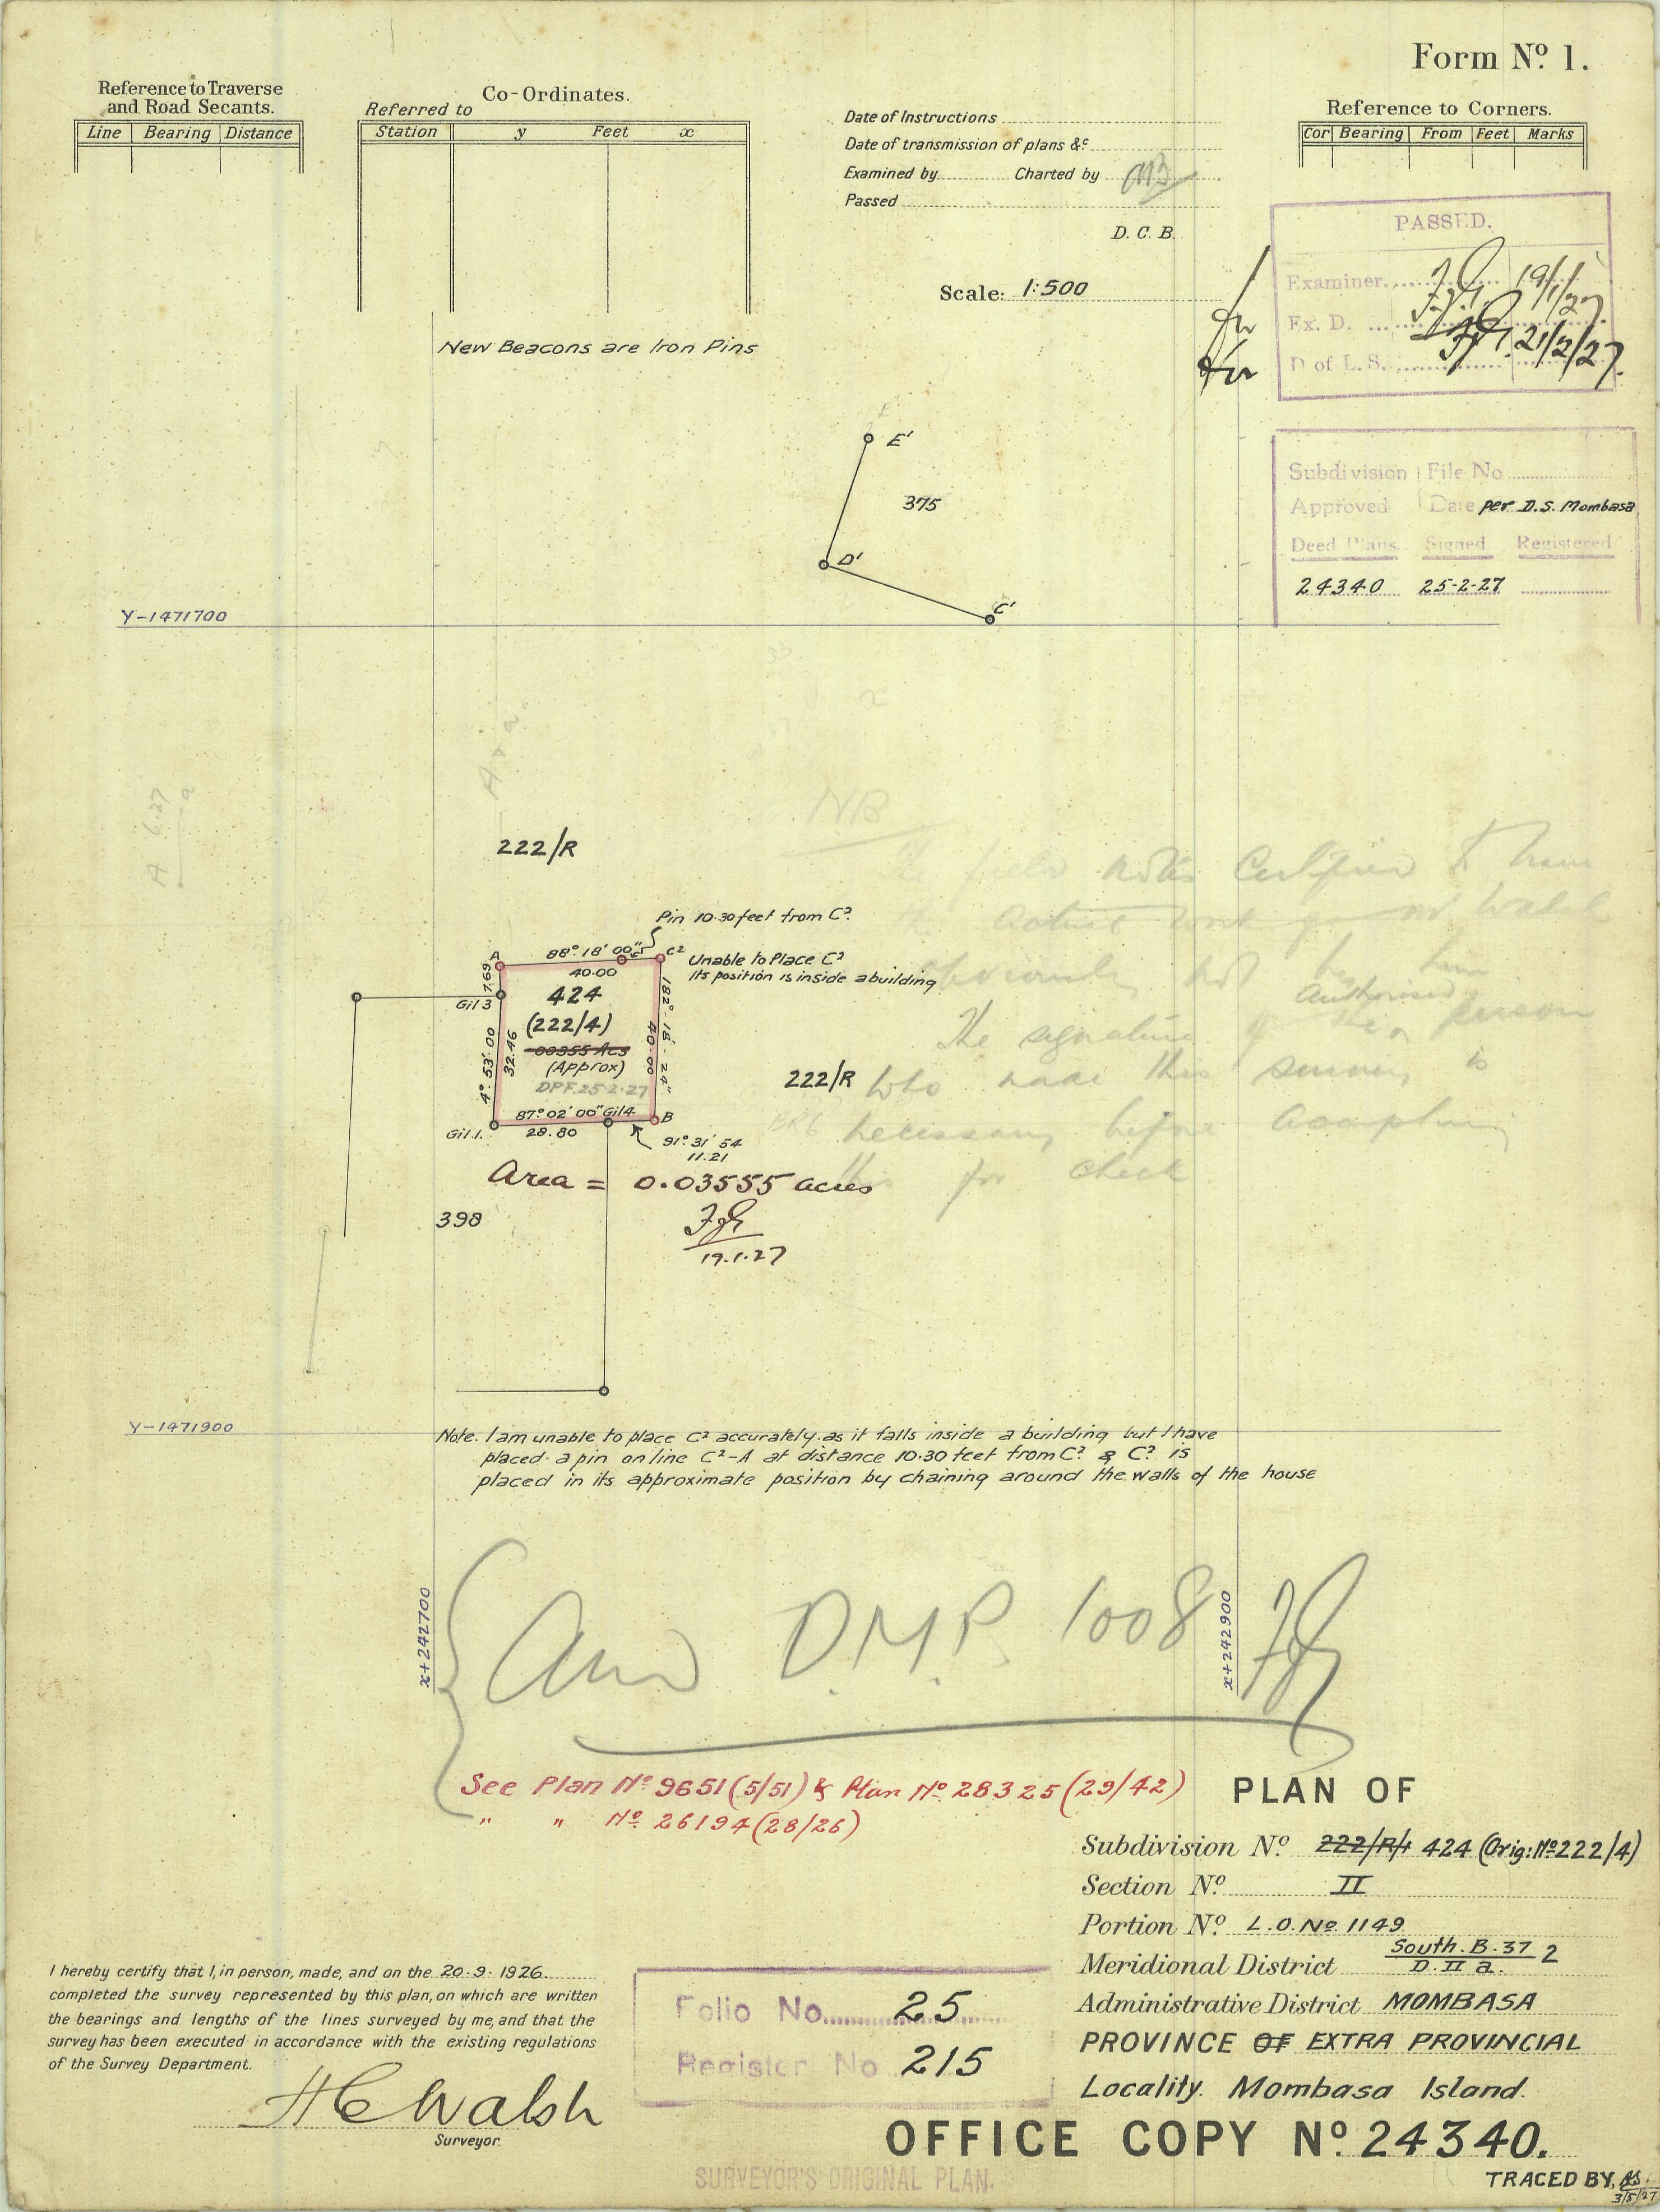 Form No. 1.
Reference to Traverse
and Road Secants.
Line Bearing Distance
Co-Ordinates.
Referred to
Station y Feet x
Date of Instructions
Date of transmission of plans &c
Examined by Charted by
Passed
D. C. B.
Scale: 1:500
Reference to Corners.
Cor Bearing From Feet Marks
PASSED.
Examiner 19/1/27
Ex. D.
D of L. S. 21/2/27
Subdivision File No
Approved Date per D.S. Mombasa
Deed Plans. Signed. Registered
24340 25-2-27
New Beacons are Iron Pins
E'
375
D'
C'
Y-1471700
NB
222/R
Pin 10.30 feet from C²
88° 18' 00"
A
C²
Unable to Place C²
Its position is inside a building
40.00
7.69
Gil 3
424
(222/4)
00355 Acs
(Approx)
DPF. 25.2.27
4° 53' 00
32.46
182° 18' 24"
40.00
222/R
87° 02' 00" Gil 4
B
Gil 1.
28.80
91° 31' 54
11.21
Area = 0.03555 acres
19.1.27
398
Y-1471900
Note. I am unable to place C² accurately. as it falls inside a building but I have
placed a pin on line C²-A at distance 10.30 feet from C² & C² is
placed in its approximate position by chaining around the walls of the house
x+242700
x+242900
D.M.P. 1008
See Plan No. 9651 (5/51) & Plan No. 28325 (29/42)
" " No. 26194 (28/26)
PLAN OF
Subdivision No. 222/R/1 424 (Orig: No 222/4)
Section No. II
Portion No. L.O. No. 1149
Meridional District South. B. 37 2
D. II a.
Administrative District MOMBASA
PROVINCE OF EXTRA PROVINCIAL
Locality. Mombasa Island.
I hereby certify that I, in person, made, and on the 20.9.1926.
completed the survey represented by this plan, on which are written
the bearings and lengths of the lines surveyed by me, and that the
survey has been executed in accordance with the existing regulations
of the Survey Department.
H C Walsh
Surveyor.
Folio No. 25
Register No 215
OFFICE COPY No. 24340.
SURVEYOR'S ORIGINAL PLAN.
TRACED BY,
3/5/27